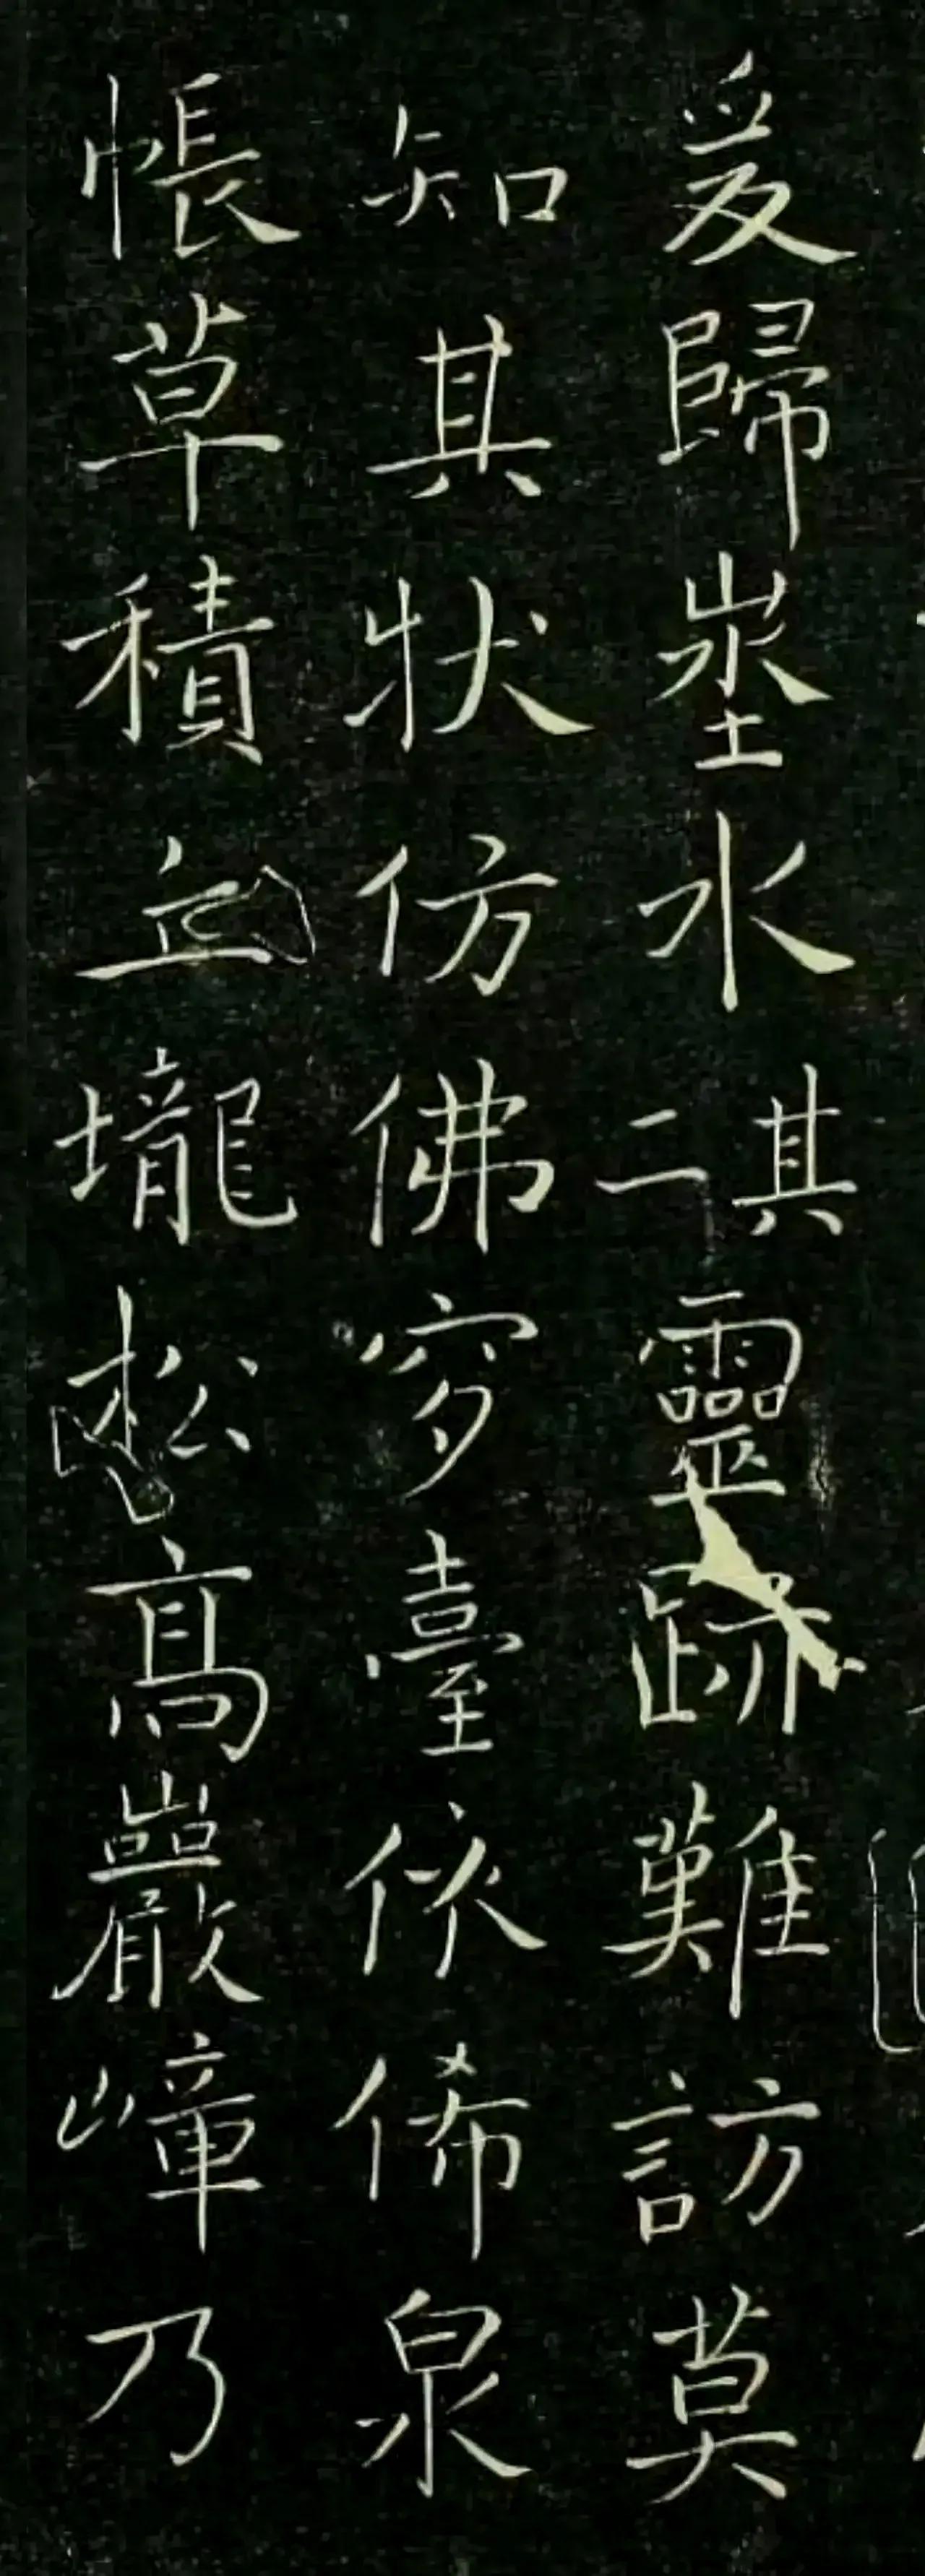 爰歸埊水其二靈跡難訪莫
知其状仿佛穸臺依俙泉
帳草積丘壠松髙巖嶂乃